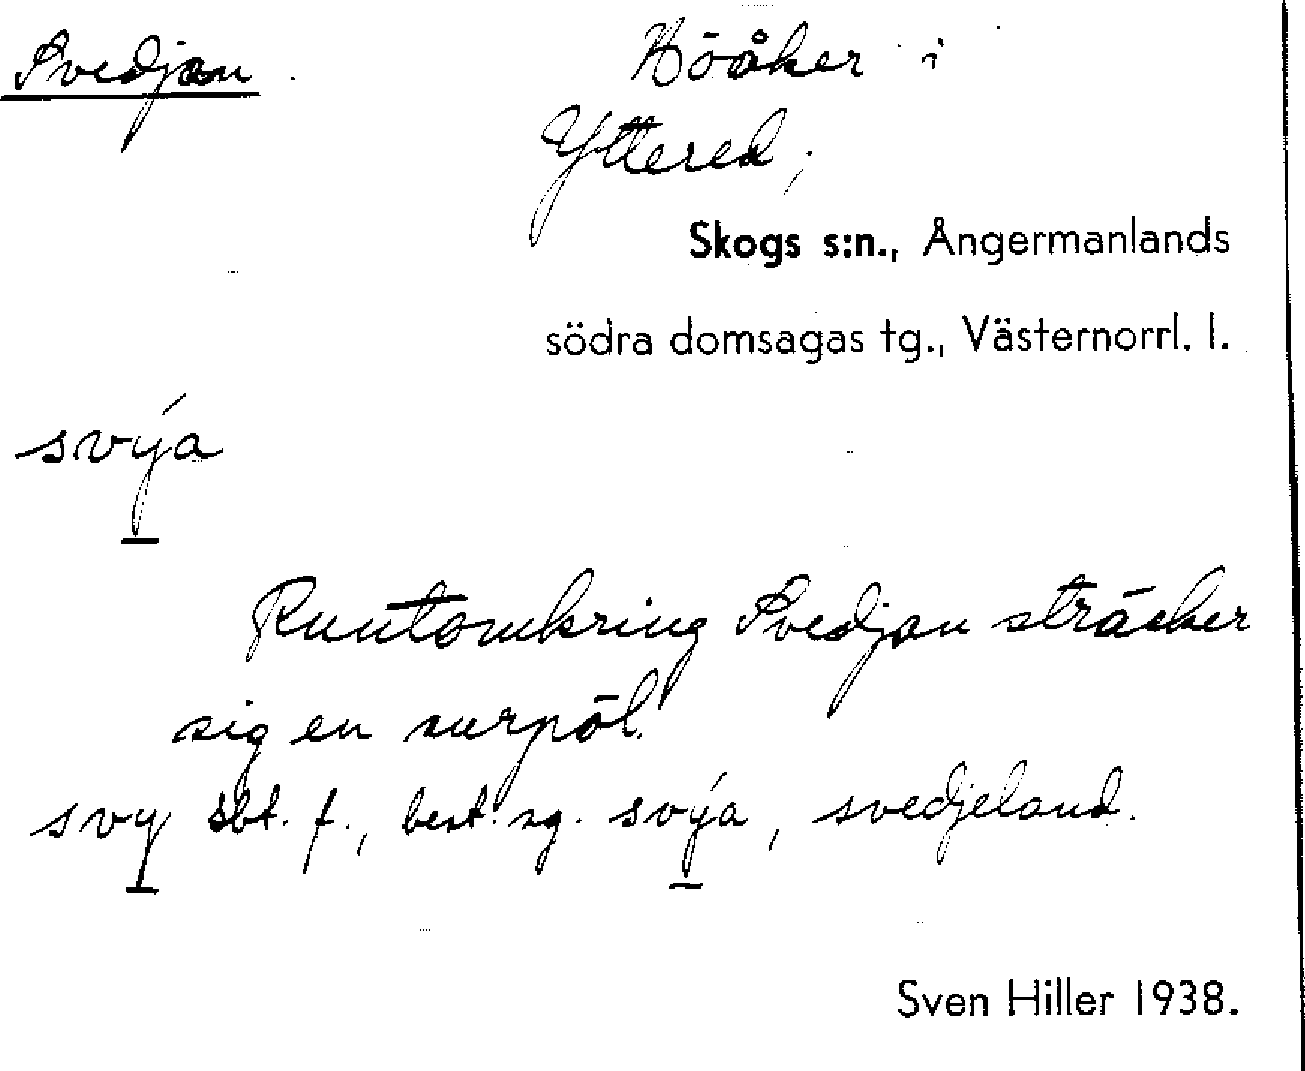 Svedjan Höåker i
Yttered,
Skogs s:n., Ångermanlands
södra domsagas tg., Västernorrl. l.
svý̲a
Runtomkring Svedjan sträcker
sig en surpöl.
svy̲ sbt. f., best. sg. svý̲a, svedjeland.
Sven Hiller 1938.